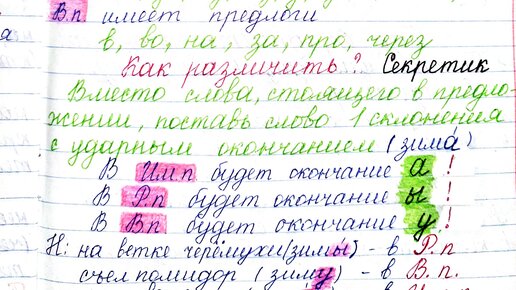 В.п. имеет предлоги
в, во, на, за, про, через
Как различить? Секретик
Вместо слова, стоящего в предло-
жении, поставь слово 1 склонения
с ударным окончанием (зимá)
В Им.п. будет окончание а!
В Р.п. будет окончание ы!
В В.п. будет окончание у!
Н: на ветке черёмухи (зимы́) - в Р.п
съел помидор (зиму) - в В.п.